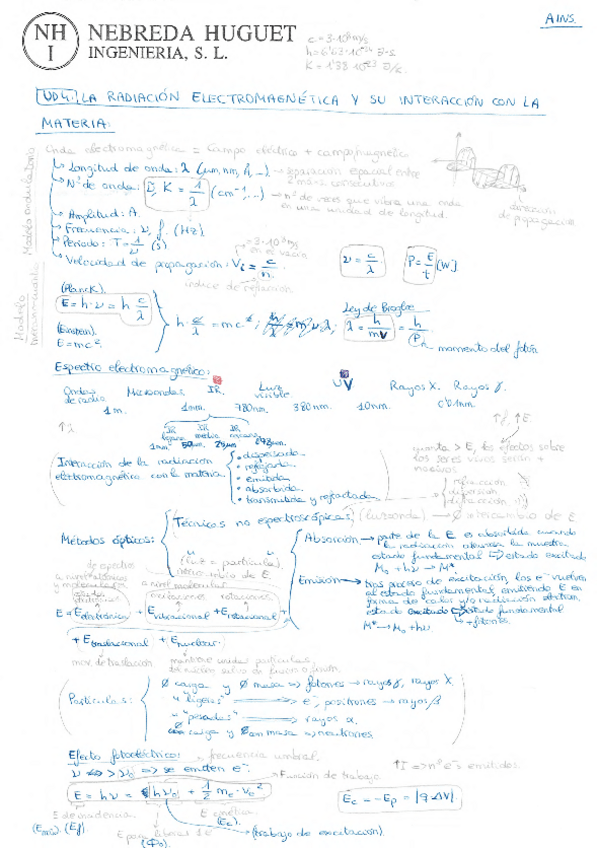 AINS.
NH
I
NEBREDA HUGUET
INGENIERIA, S. L.
c = 3·10⁸ m/s
h = 6'63·10⁻³⁴ J·s
K = 1'38·10⁻²³ J/K.
UD4. LA RADIACIÓN ELECTROMAGNÉTICA Y SU INTERACCIÓN CON LA
MATERIA:
Modelo ondulatorio
Onda electromagnética = Campo eléctrico + campo magnético
Longitud de onda: λ (μm, nm, Å, ...) → separación espacial entre
2 máx. consecutivos
Nº de onda: ν̄, K = 1/λ (cm⁻¹, ...) → nº de veces que vibra una onda
en una unidad de longitud.
dirección
de propagación
Amplitud: A.
Frecuencia: ν, f. (Hz)
Período: T = 1/ν (s)
= 3·10⁸ m/s
en el vacío
Velocidad de propagación: Vi = c/n.
índice de refracción
ν = c/λ
P = E/t [W]
Modelo
(Planck).
E = h·ν = h c/λ
(Einstein).
E = mc².
h·c/λ = mc²;
Ley de Broglie
λ = h/mv = h/P
momento del fotón
Espectro electromagnético:
Ondas de radio Microondas IR Luz visible UV Rayos X. Rayos γ.
1 m. 1 mm. 780 nm. 380 nm. 10 nm. 0'01 nm.
↑λ
↑f, ↑E.
IR IR IR
Interacción de la radiación
electromagnética con la materia
• dispersada.
• reflejada.
• emitida
• absorbida.
• transmitida y refractada
cuanta > E, los efectos sobre
los seres vivos serán +
nocivos.
refracción
dispersión
Métodos ópticos:
Técnicas no espectroscópicas (luz=onda) → ∅ intercambio de E
(luz = partícula).
intercambio de E.
Absorción → parte de la E es absorbida cuando
la radiación atraviesa la muestra
estado fundamental → estado excitado
M₀ + hν → M*
Emisión → tras proceso de excitación los e⁻ vuelven
al estado fundamental, emitiendo E en
forma de calor y/o radiación electrom.
estado excitado → estado fundamental
M* → M₀ + hν
+ fotones
a nivel molecular
vibraciones rotaciones
E = Eelectrónica + Evibracional + Erotacional +
+ Etraslacional + Enuclear.
mov. de traslación
mantiene unidas partículas
del núcleo salvo de fusión o fisión.
Partículas:
∅ carga y ∅ masa ⇒ fotones → rayos γ, rayos X.
" "ligeras" ⇒ e⁻, positrones → rayos β
" "pesadas" ⇒ rayos α.
∅ carga y con masa ⇒ neutrones
Efecto fotoeléctrico:
frecuencia umbral.
ν ⇔ > ν₀ ⇒ se emiten e⁻
Función de trabajo
↑I ⇒ nº e⁻s emitidos.
E = hν = hν₀ + 1/2 me·v₀²
Ec = -Ep = |q·ΔV|.
E de incidencia.
E para liberar 1 e⁻
E cinética.
(Ec).
(Φ₀).
(trabajo de excitación).